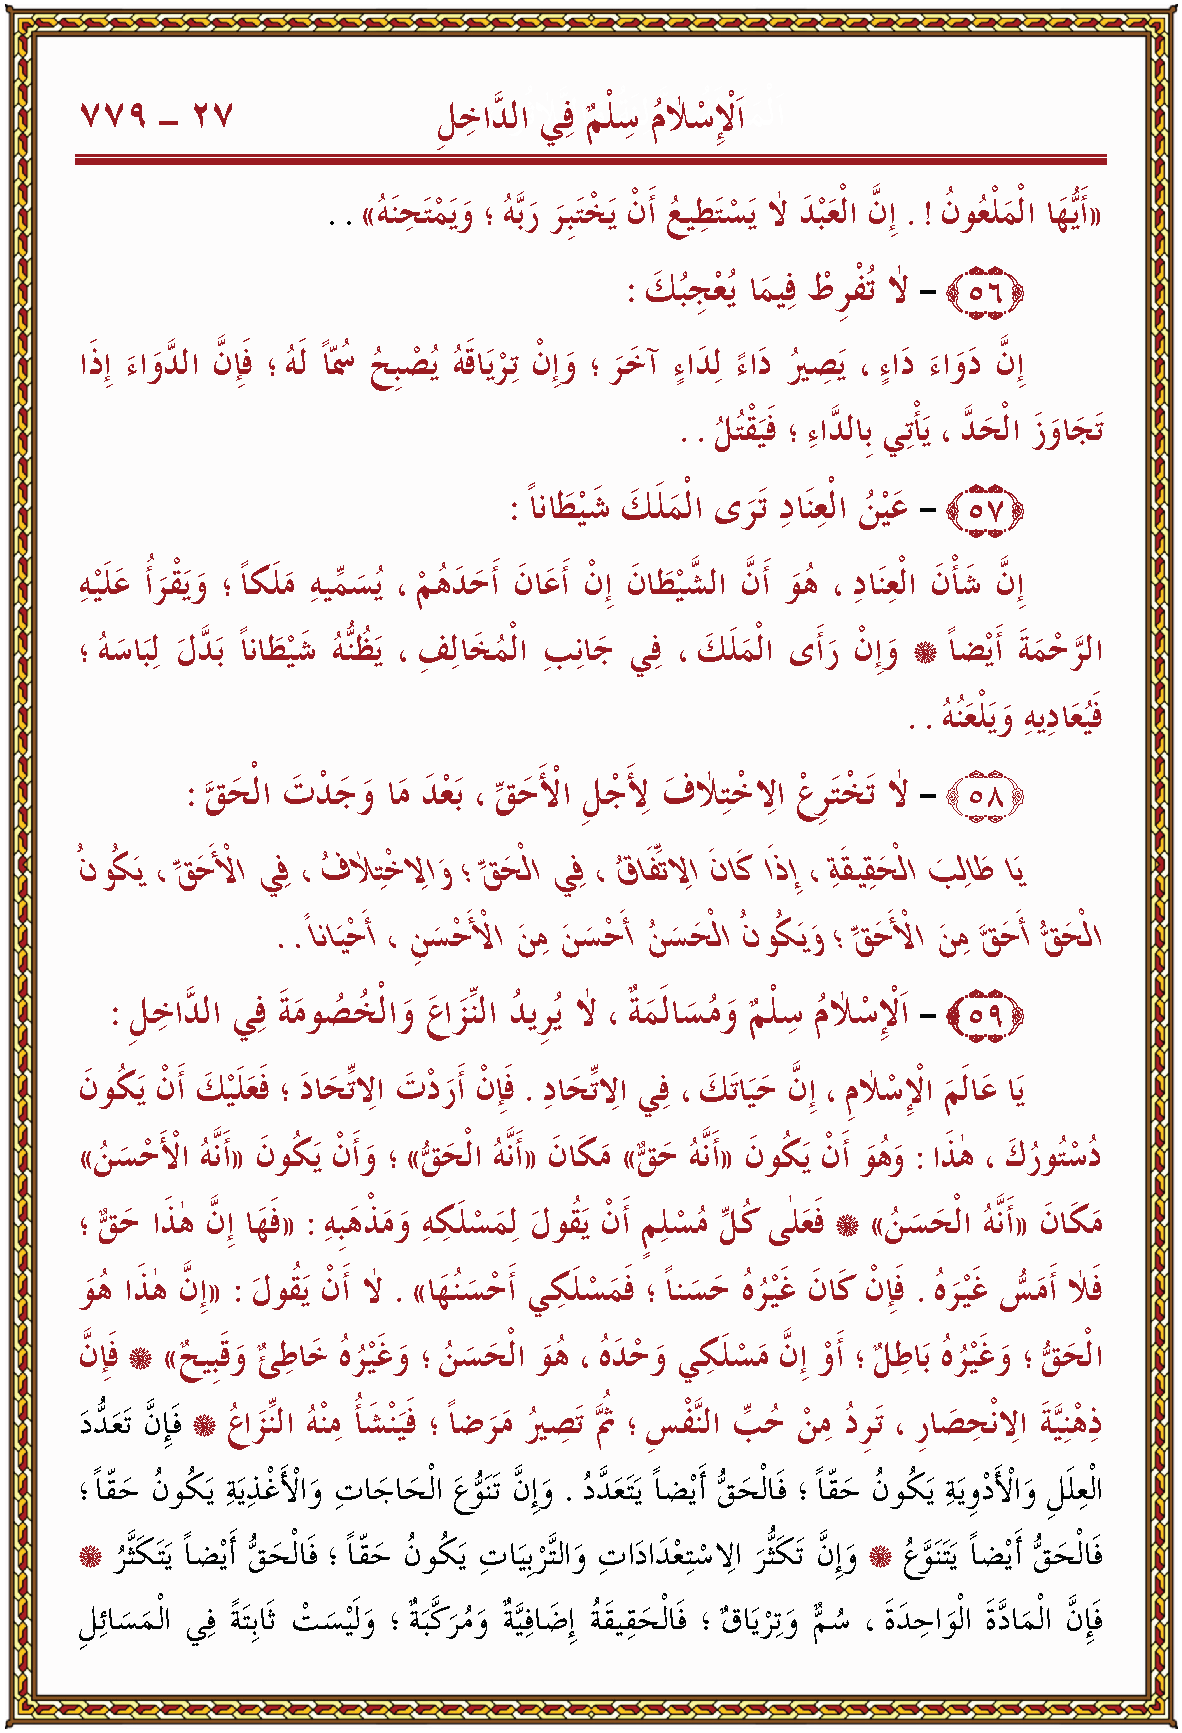 اَلْإِسْلٰامُ سِلْمٌ فِي الدَّاخِلِ ٢٧ – ٧٧٩
«أَيُّهَا الْمَلْعُونُ ! . إِنَّ الْعَبْدَ لٰا يَسْتَطِيعُ أَنْ يَخْتَبِرَ رَبَّهُ ؛ وَيَمْتَحِنَهُ» . .
﴿٥٦﴾ – لٰا تُفْرِطْ فِيمَا يُعْجِبُكَ :
إِنَّ دَوَاءَ دَاءٍ ، يَصِيرُ دَاءً لِدَاءٍ آخَرَ ؛ وَإِنْ تِرْيَاقَهُ يُصْبِحُ سُمّاً لَهُ ؛ فَإِنَّ الدَّوَاءَ إِذَا
تَجَاوَزَ الْحَدَّ ، يَأْتِي بِالدَّاءِ ؛ فَيَقْتُلُ . .
﴿٥٧﴾ – عَيْنُ الْعِنَادِ تَرَى الْمَلَكَ شَيْطَاناً :
إِنَّ شَأْنَ الْعِنَادِ ، هُوَ أَنَّ الشَّيْطَانَ إِنْ أَعَانَ أَحَدَهُمْ ، يُسَمِّيهِ مَلَكاً ؛ وَيَقْرَأُ عَلَيْهِ
الرَّحْمَةَ أَيْضاً ۞ وَإِنْ رَأَى الْمَلَكَ ، فِي جَانِبِ الْمُخَالِفِ ، يَظُنُّهُ شَيْطَاناً بَدَّلَ لِبَاسَهُ ؛
فَيُعَادِيهِ وَيَلْعَنُهُ . .
﴿٥٨﴾ – لٰا تَخْتَرِعْ الِاخْتِلٰافَ لِأَجْلِ الْأَحَقِّ ، بَعْدَ مَا وَجَدْتَ الْحَقَّ :
يَا طَالِبَ الْحَقِيقَةِ ، إِذَا كَانَ الِاتِّفَاقُ ، فِي الْحَقِّ ؛ وَالِاخْتِلٰافُ ، فِي الْأَحَقِّ ، يَكُونُ
الْحَقُّ أَحَقَّ مِنَ الْأَحَقِّ ؛ وَيَكُونُ الْحَسَنُ أَحْسَنَ مِنَ الْأَحْسَنِ ، أَحْيَاناً . .
﴿٥٩﴾ – اَلْإِسْلٰامُ سِلْمٌ وَمُسَالَمَةٌ ، لٰا يُرِيدُ النِّزَاعَ وَالْخُصُومَةَ فِي الدَّاخِلِ :
يَا عَالَمَ الْإِسْلٰامِ ، إِنَّ حَيَاتَكَ ، فِي الِاتِّحَادِ . فَإِنْ أَرَدْتَ الِاتِّحَادَ ؛ فَعَلَيْكَ أَنْ يَكُونَ
دُسْتُورُكَ ، هٰذَا : وَهُوَ أَنْ يَكُونَ «أَنَّهُ حَقٌّ» مَكَانَ «أَنَّهُ الْحَقُّ» ؛ وَأَنْ يَكُونَ «أَنَّهُ الْأَحْسَنُ»
مَكَانَ «أَنَّهُ الْحَسَنُ» ۞ فَعَلٰى كُلِّ مُسْلِمٍ أَنْ يَقُولَ لِمَسْلَكِهِ وَمَذْهَبِهِ : «فَهَا إِنَّ هٰذَا حَقٌّ ؛
فَلٰا أَمَسُّ غَيْرَهُ . فَإِنْ كَانَ غَيْرُهُ حَسَناً ؛ فَمَسْلَكِي أَحْسَنُهَا» . لٰا أَنْ يَقُولَ : «إِنَّ هٰذَا هُوَ
الْحَقُّ ؛ وَغَيْرُهُ بَاطِلٌ ؛ أَوْ إِنَّ مَسْلَكِي وَحْدَهُ ، هُوَ الْحَسَنُ ؛ وَغَيْرُهُ خَاطِئٌ وَقَبِيحٌ» ۞ فَإِنَّ
ذِهْنِيَّةَ الِانْحِصَارِ ، تَرِدُ مِنْ حُبِّ النَّفْسِ ؛ ثُمَّ تَصِيرُ مَرَضاً ؛ فَيَنْشَأُ مِنْهُ النِّزَاعُ ۞ فَإِنَّ تَعَدُّدَ
الْعِلَلِ وَالْأَدْوِيَةِ يَكُونُ حَقّاً ؛ فَالْحَقُّ أَيْضاً يَتَعَدَّدُ . وَإِنَّ تَنَوُّعَ الْحَاجَاتِ وَالْأَغْذِيَةِ يَكُونُ حَقّاً ؛
فَالْحَقُّ أَيْضاً يَتَنَوَّعُ ۞ وَإِنَّ تَكَثُّرَ الِاسْتِعْدَادَاتِ وَالتَّرْبِيَاتِ يَكُونُ حَقّاً ؛ فَالْحَقُّ أَيْضاً يَتَكَثَّرُ ۞
فَإِنَّ الْمَادَّةَ الْوَاحِدَةَ ، سُمٌّ وَتِرْيَاقٌ ؛ فَالْحَقِيقَةُ إِضَافِيَّةٌ وَمُرَكَّبَةٌ ؛ وَلَيْسَتْ ثَابِتَةً فِي الْمَسَائِلِ